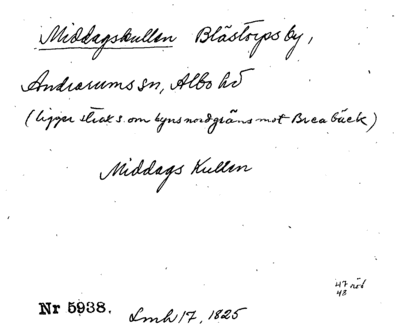 Middagskullen Blåstorps by,
Andrarums sn, Albo hd
(ligger straks s. om byns nordgräns mot Brea bäck)
Middags Kullen
47 röd
43
Nr 5938. Lmh 17, 1825